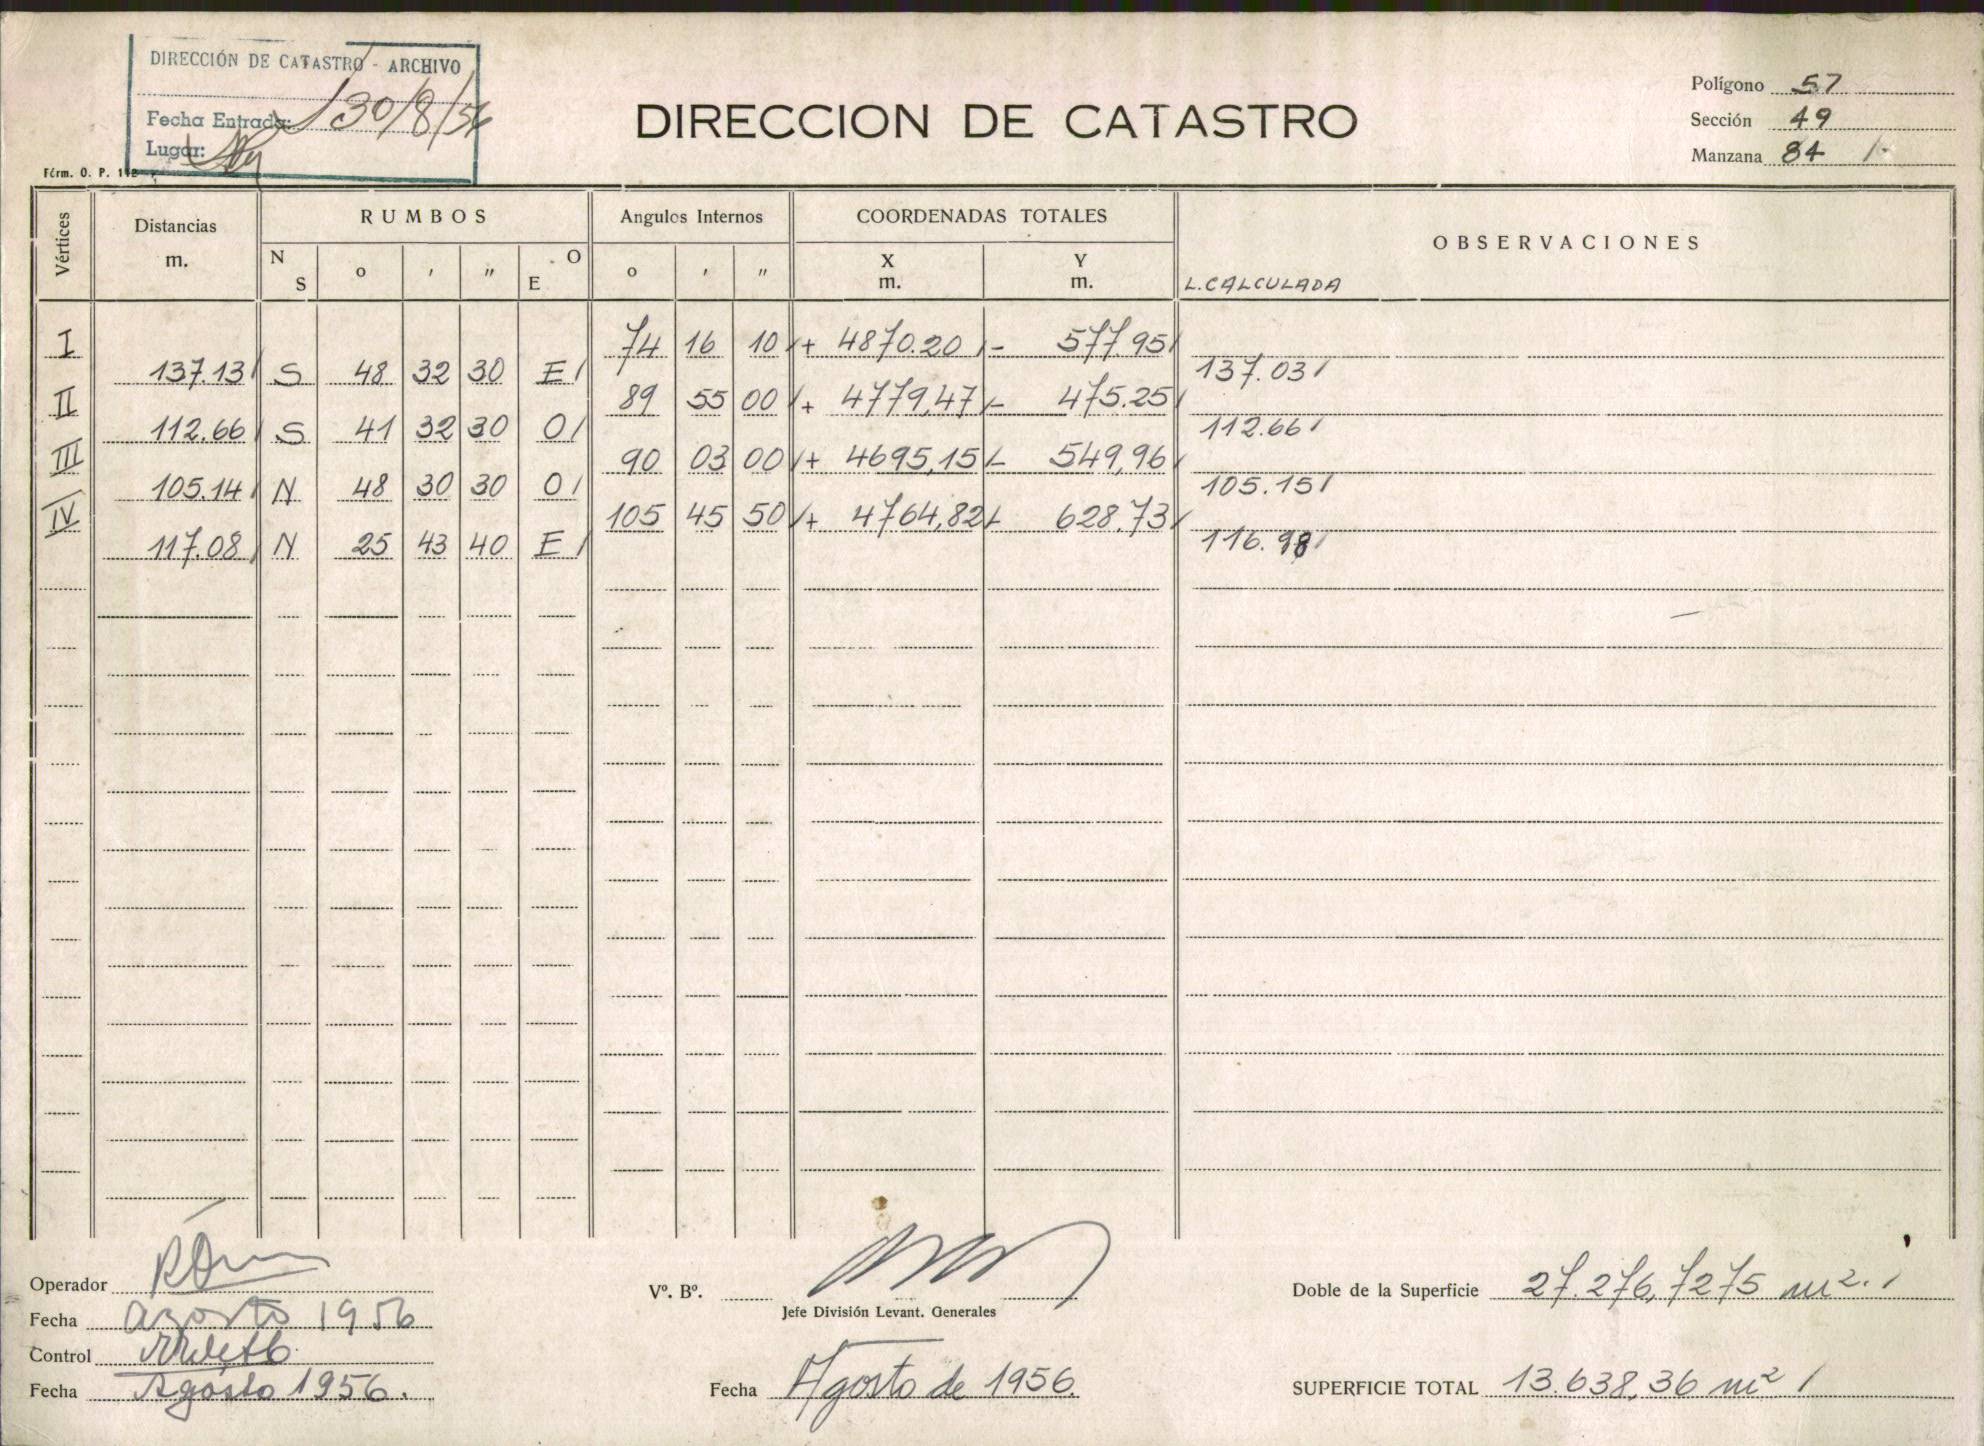 DIRECCIÓN DE CATASTRO - ARCHIVO
Fecha Entrada: 30/8/56
Lugar:
Fórm. O. P. 112
DIRECCION DE CATASTRO
Polígono 57
Sección 49
Manzana 84
Vértices Distancias m. RUMBOS Angulos Internos COORDENADAS TOTALES OBSERVACIONES
N S ° ' " O E ° ' " X m. Y m. L. CALCULADA
I 74 16 10 + 4870.20 - 577.95
137.13 S 48 32 30 E 137.03
II 89 55 00 + 4779,47 - 475.25
112.66 S 41 32 30 O 112.66
III 90 03 00 + 4695,15 - 549,96
105.14 N 48 30 30 O 105.15
IV 105 45 50 + 4764,82 - 628.73
117.08 N 25 43 40 E 116.98
Operador
Fecha agosto 1956
Control
Fecha Agosto 1956.
Vº. Bº.
Jefe División Levant. Generales
Fecha Agosto de 1956.
Doble de la Superficie 27.276,7275 m².
SUPERFICIE TOTAL 13.638,36 m²